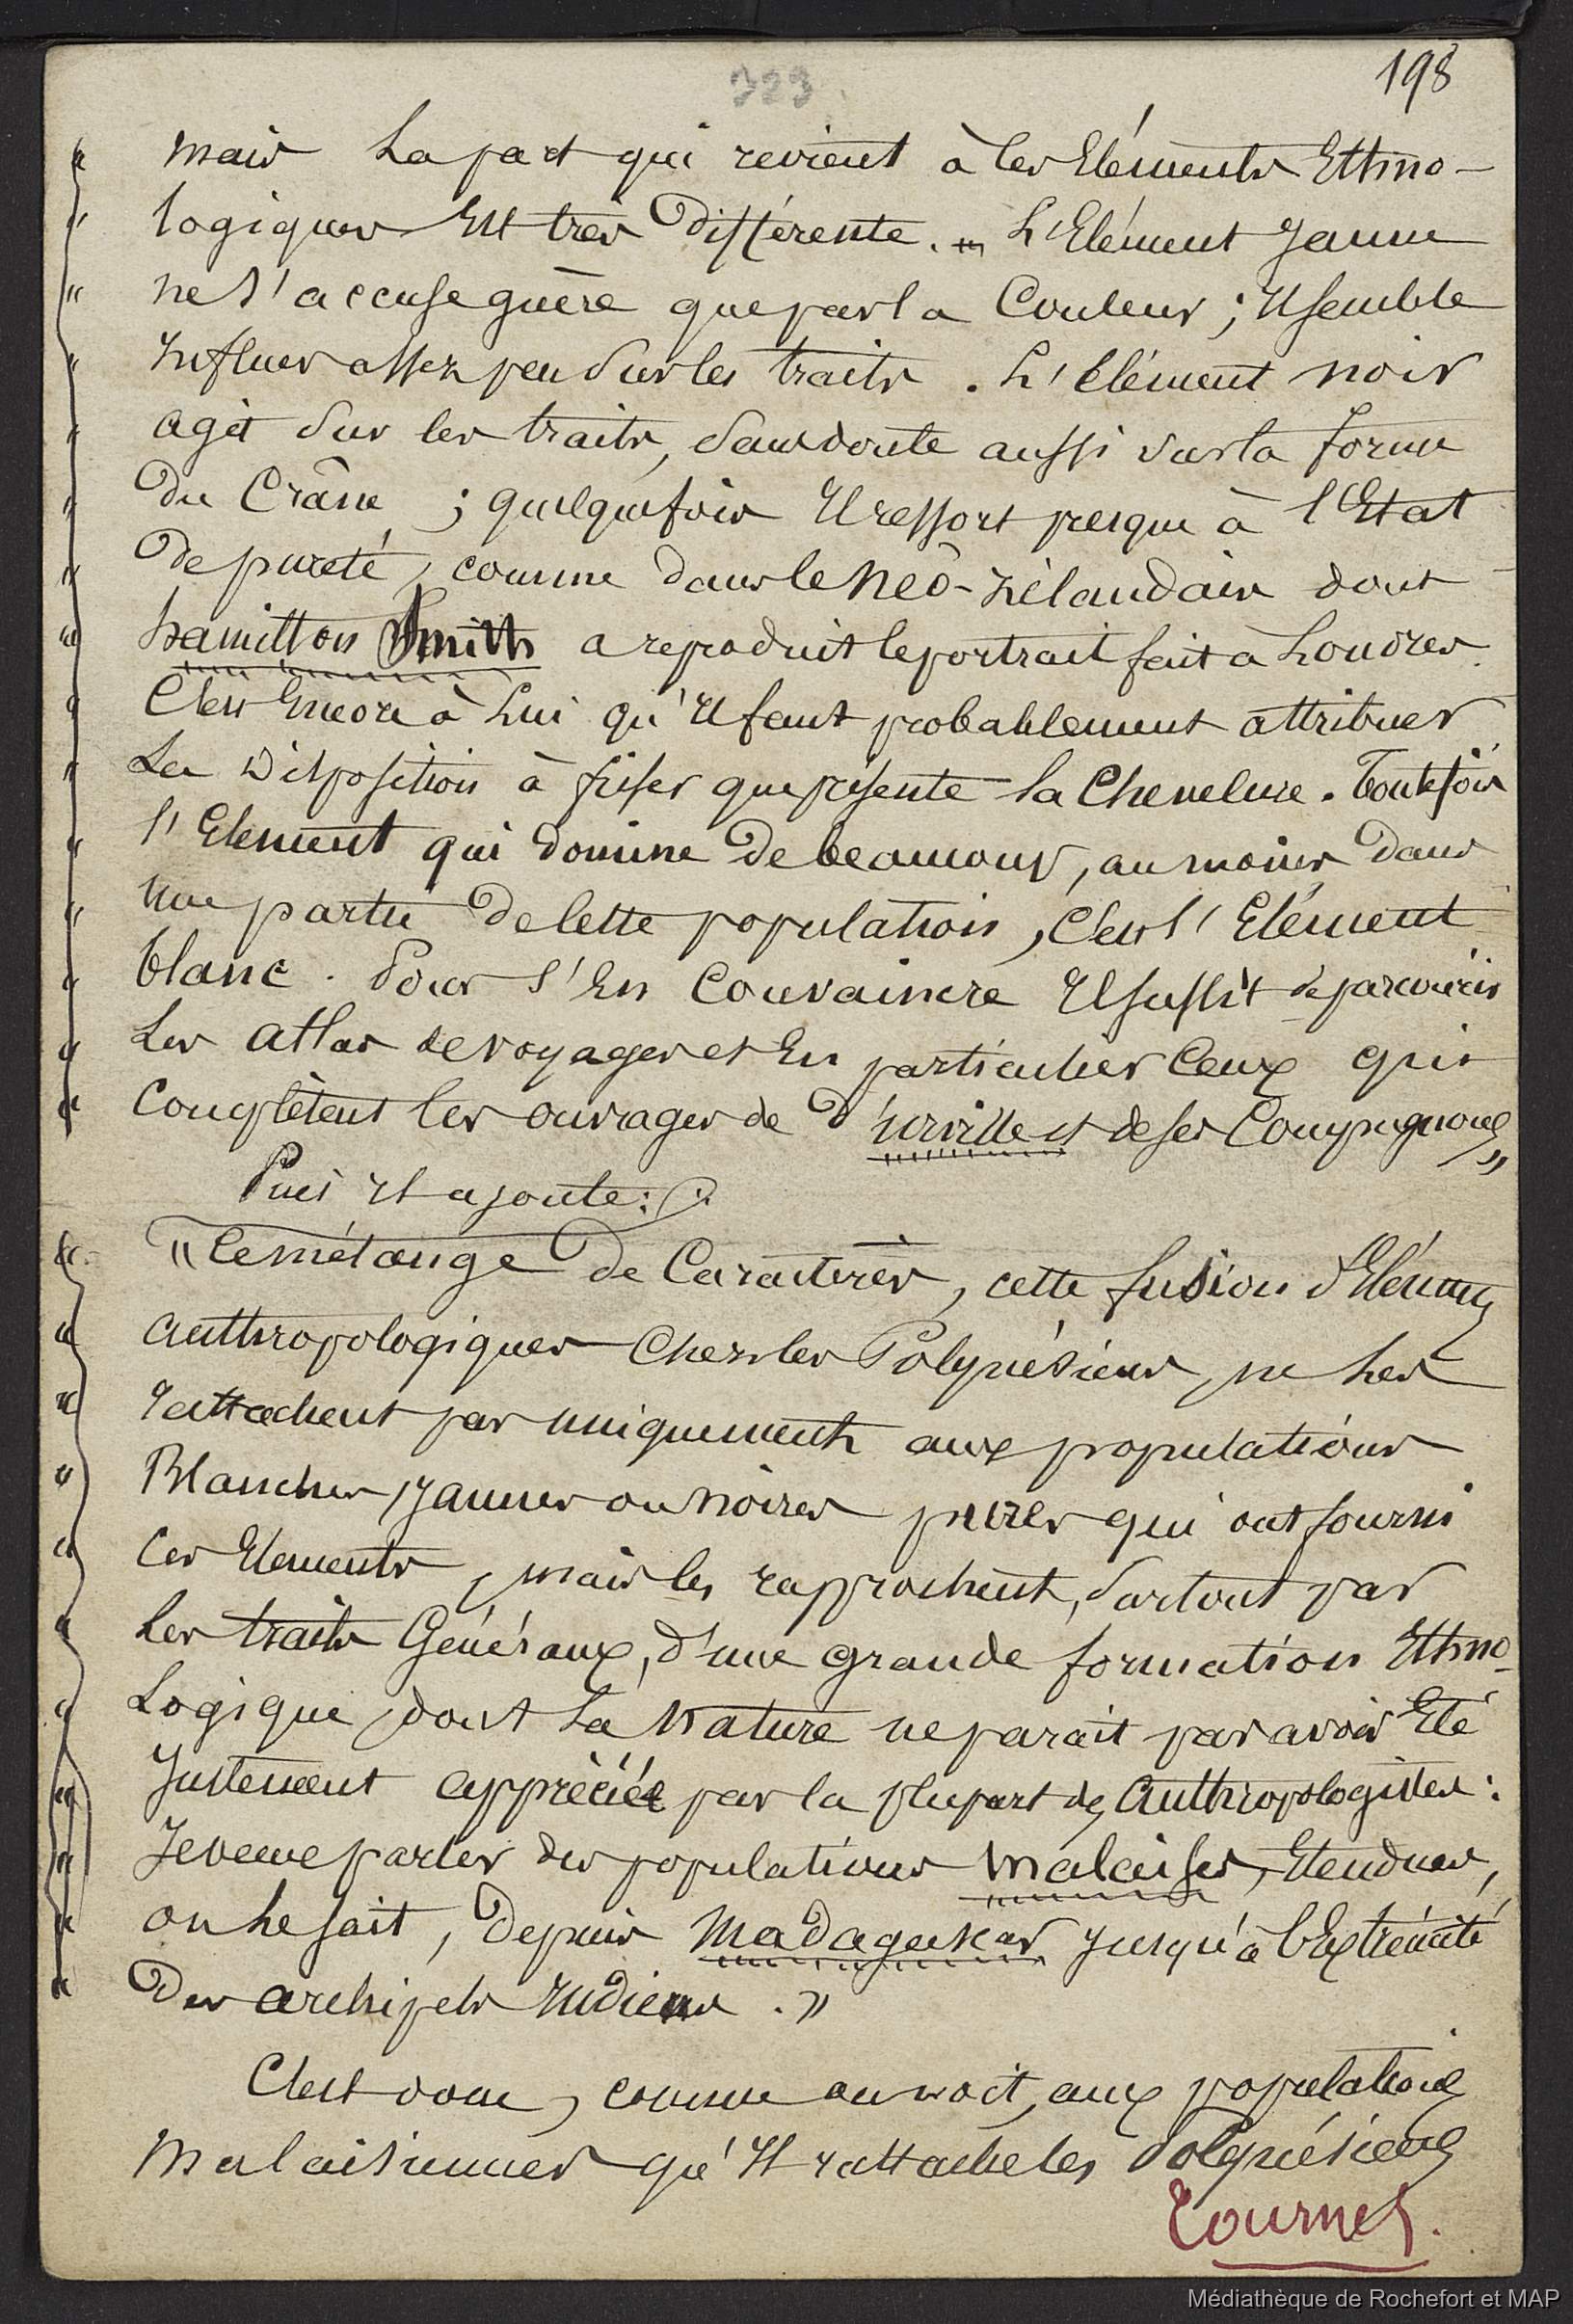 323.
198
mais La part qui revient à ces Eléments Ethno-
logiques Est très Différente. - L'Elément Jaune
ne s'accuse guère que par la Couleur ; Il semble
Influer assez peu sur les traits. L'élément noir
agit sur les traits, sans doute aussi sur la forme
Du Crâne ; quelquefois Il ressort presque à l'Etat
De pureté, comme dans le Néo-Zélandais dont
hamilton Smith a reproduit le portrait fait à Londres.
C'est Encore à Lui qu'Il faut probablement attribuer
La Disposition à friser que présente la Chevelure. Toutefois
l'Elément qui Domine De beaucoup, au moins Dans
Une partie De Cette population, C'est l'Elément
blanc. Pour s'En Convaincre Il suffit de parcourir
Les atlas de voyages et En particulier Ceux qui
Complètent les ouvrages de D'urville et de ses Compagnons »
Puis Il ajoute :
« Ce mélange De Caractères, cette fusion d'Eléments
anthropologiques Chez les Polynésiens, ne Les
rattachent pas uniquement aux populations
Blanches, Jaunes ou Noires pures qui ont fourni
Ces Eléments, mais les rapprochent, Surtout par
Les traits Généraux, d'une grande formation Ethno-
Logique, dont La Nature ne parait pas avoir Eté
Justement appréciée par la plupart des anthropologistes :
Je veux parler des populations Malaises, Etendues,
on Le sait, Depuis Madagascar Jusqu'à l'Extrémité
Des archipels Indiens. »
C'est donc, comme on voit, aux populations
Malaisiennes qu'Il rattache les Polynésiens
Tournez.
Médiathèque de Rochefort et MAP